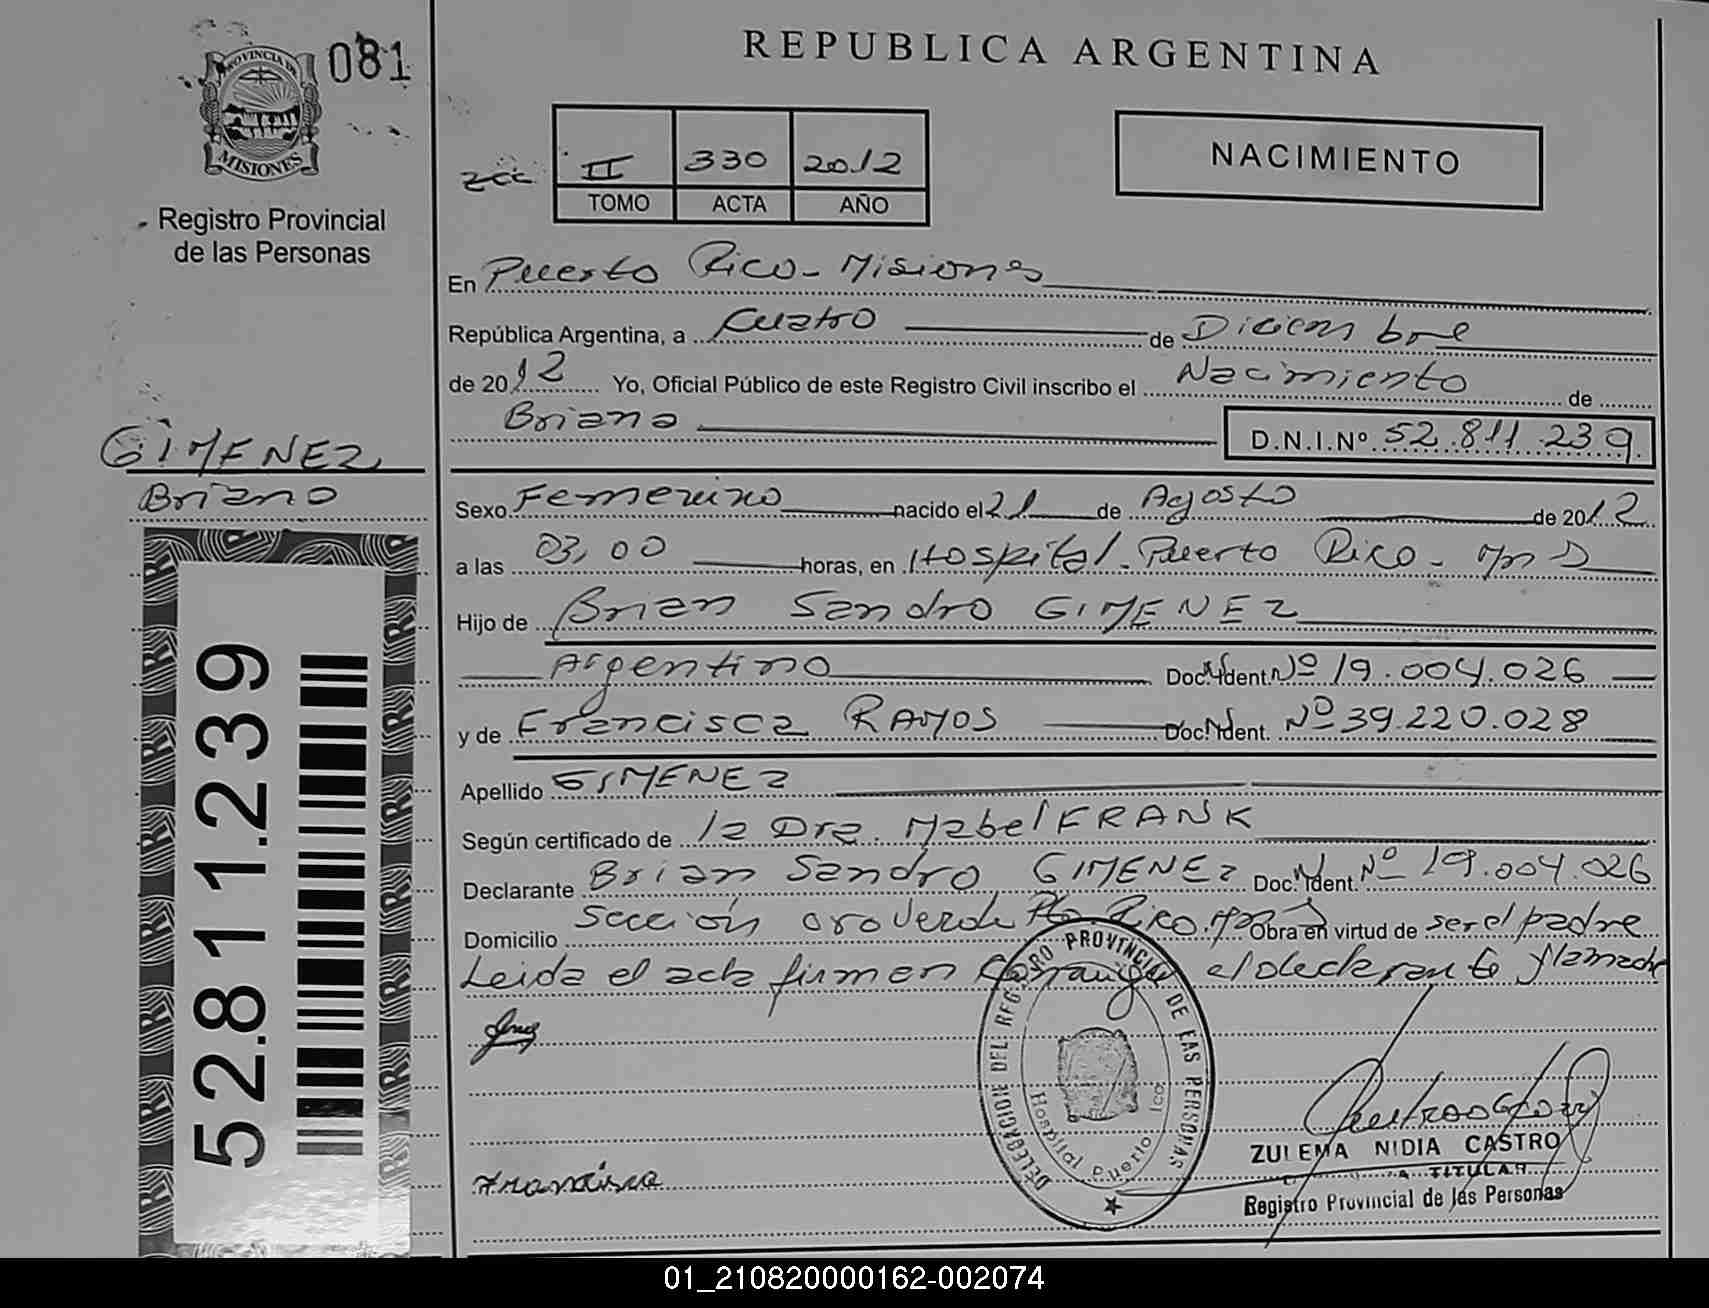 081
PROVINCIA DE
MISIONES
Registro Provincial
de las Personas
REPUBLICA ARGENTINA
II 330 2012
TOMO ACTA AÑO
NACIMIENTO
En Puerto Rico - Misiones
República Argentina, a Cuatro de Diciembre
de 2012 Yo, Oficial Público de este Registro Civil inscribo el Nacimiento de
Briana D.N.I.Nº 52.811.239
GIMENEZ
Briana
Sexo Femenino nacido el 21 de Agosto de 2012
a las 03,00 horas, en Hospital - Puerto Rico - Mns
Hijo de Brian Sandro GIMENEZ
Argentino Doc. Ident. Nº 19.004.026
y de Francisca RAMOS Doc. Ident. Nº 39.220.028
Apellido GIMENEZ
Según certificado de la Dra. Mabel FRANK
Declarante Brian Sandro GIMENEZ Doc. Ident. Nº 19.004.026
Domicilio Sección oro Verde Pto Rico. Mns Obra en virtud de ser el padre
Leida el acta firman el declarante y la madre
52.811.239
DELEGACION DEL REGISTRO PROVINCIAL DE LAS PERSONAS
Hospital Puerto Ico
Francisca
ZULEMA NIDIA CASTRO
TITULAR
Registro Provincial de las Personas
01_210820000162-002074